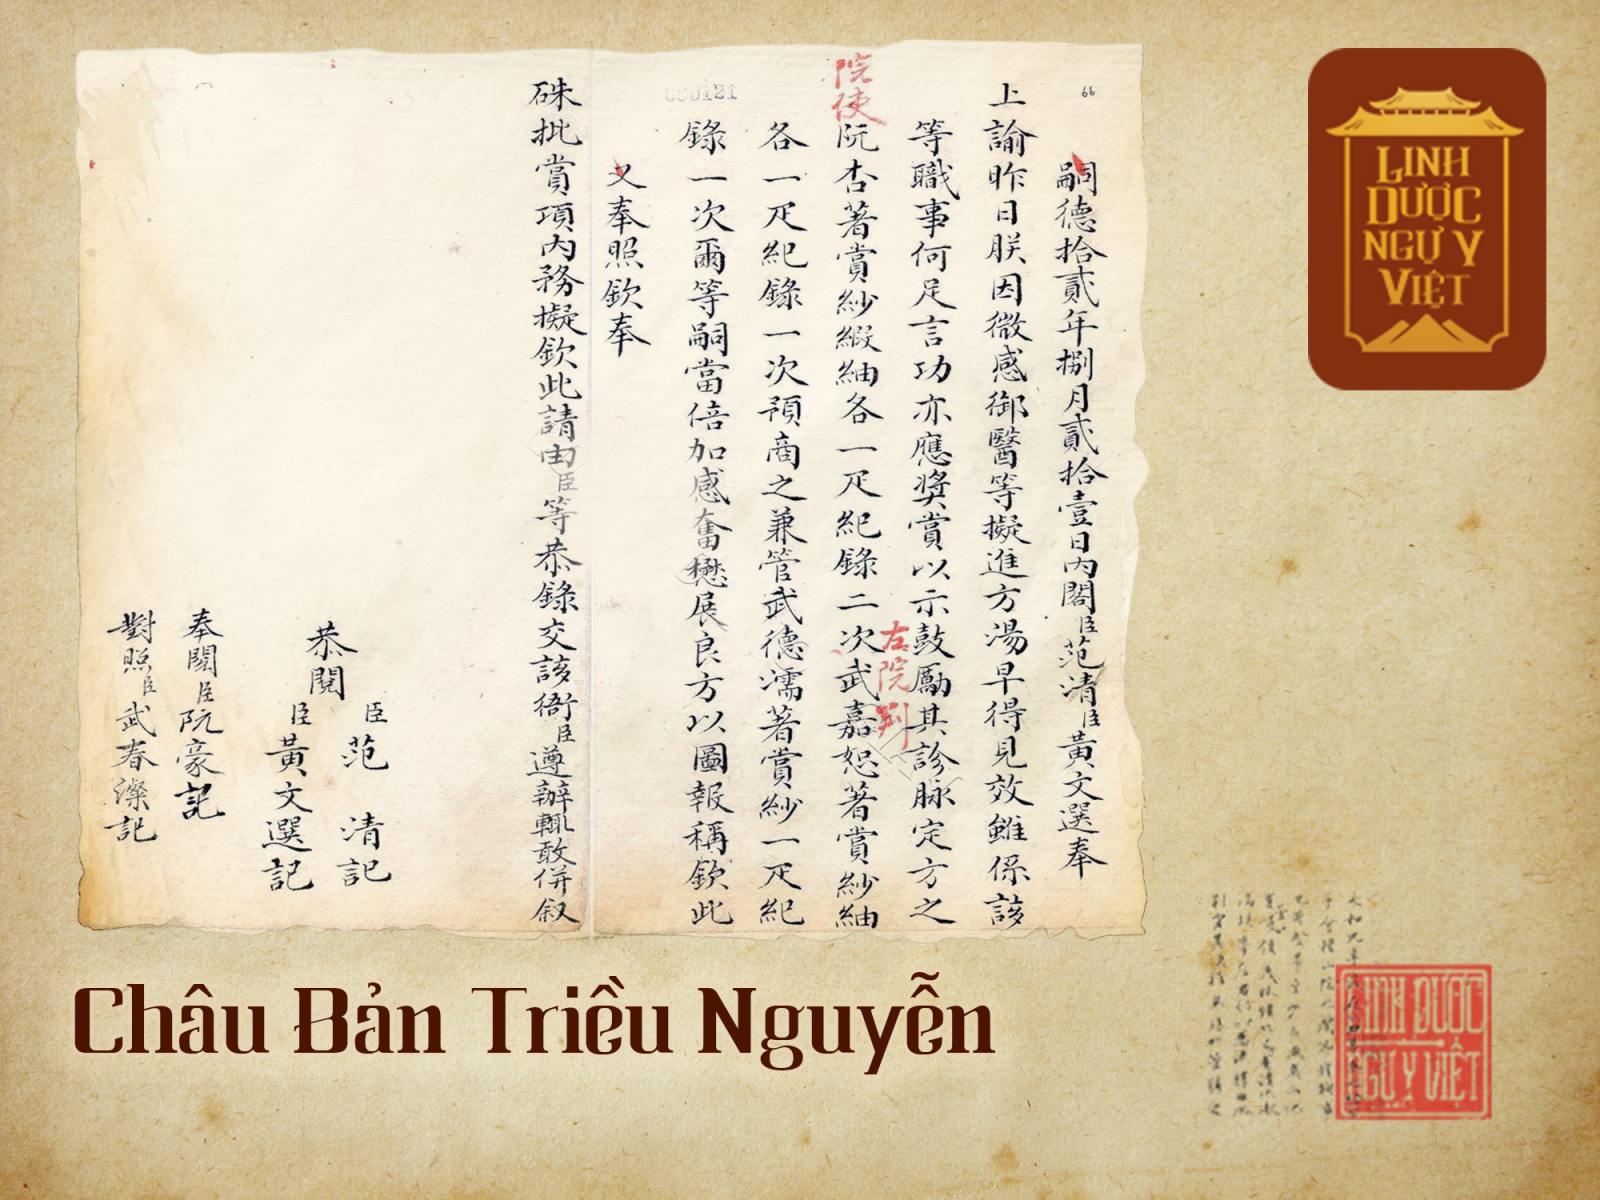 66
000121
嗣德拾貳年捌月貳拾壹日內閣臣范清臣黃文選奉
上諭昨日朕因微感御醫等擬進方湯早得見效雖係該
等職事何足言功亦應獎賞以示鼓勵其診脉定方之
院使
阮杏著賞紗緞紬各一疋紀錄二次武嘉恕著賞紗紬
左院判
各一疋紀錄一次預商之兼管武德濡著賞紗一疋紀
錄一次爾等嗣當倍加感奮懋展良方以圖報稱欽此
又奉照欽奉
硃批賞項內務擬欽此請由臣等恭錄交該衙臣遵辦輒敢併叙
恭閱
臣范清記
臣黃文選記
奉閱臣阮豪記
對照臣武春㶚記
LINH
DƯỢC
NGỰ Y
VIỆT
Châu Bản Triều Nguyễn
LINH DƯỢC
NGỰ Y VIỆT